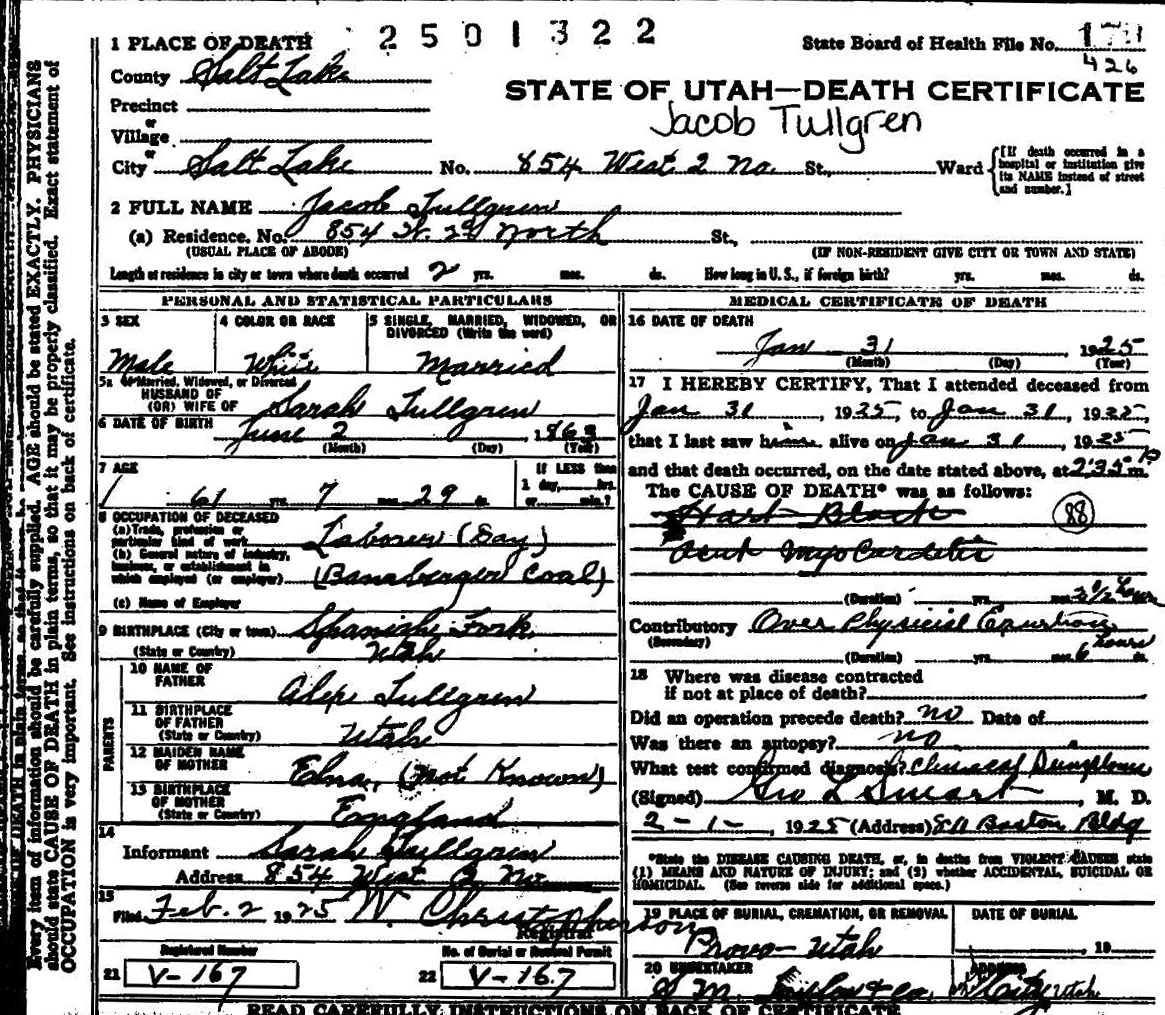 2501322
1 PLACE OF DEATH
State Board of Health File No.
426
County Salt Lake
STATE OF UTAH—DEATH CERTIFICATE
Precinct
or
Jacob Tullgren
Village
or
City Salt Lake No. 854 West 2 No. St., Ward
[If death occurred in a
hospital or institution give
its NAME instead of street
and number.]
2 FULL NAME Jacob Tullgren
(a) Residence. No. 854 W. 2d North St.,
(USUAL PLACE OF ABODE) (IF NON-RESIDENT GIVE CITY OR TOWN AND STATE)
Length of residence in city or town where death occurred 2 yrs. mos. ds. How long in U. S., if foreign birth? yrs. mos. ds.
PERSONAL AND STATISTICAL PARTICULARS
3 SEX 4 COLOR OR RACE 5 SINGLE, MARRIED, WIDOWED, OR
DIVORCED (Write the word)
Male White Married
5a If Married, Widowed, or Divorced
HUSBAND OF
(OR) WIFE OF Sarah Tullgren
6 DATE OF BIRTH June 2
(Month) (Day) (Year)
7 AGE If LESS than
1 day, hrs.
61 yrs. 7 mos. 29 ds. or min.?
8 OCCUPATION OF DECEASED
(a) Trade, profession or
particular kind of work Laborer (Day)
(b) General nature of industry,
business, or establishment in
which employed (or employer) Coal)
(c) Name of Employer
9 BIRTHPLACE (City or town) Spanish Fork
(State or Country) Utah
PARENTS
10 NAME OF
FATHER Alex Tullgren
11 BIRTHPLACE
OF FATHER
(State or Country) Utah
12 MAIDEN NAME
OF MOTHER Elna, (Not Known)
13 BIRTHPLACE
OF MOTHER
(State or Country) England
14
Informant Sarah Tullgren
Address 854 West 2 No
15
Filed Feb. 2 1925 W Christopherson
Registrar
Registered Number No. of Burial or Removal Permit
21 V-167 22 V-167
MEDICAL CERTIFICATE OF DEATH
16 DATE OF DEATH
Jan 31 1925
(Month) (Day) (Year)
17 I HEREBY CERTIFY, That I attended deceased from
Jan 31, 1925, to Jan 31, 1925,
that I last saw him alive on Jan 31, 1925
and that death occurred, on the date stated above, at 2:35 P m.
The CAUSE OF DEATH* was as follows:
Hart Block
88
Acut Myocardetis
(Duration) yrs. mos. 3 1/2 hours
Contributory Over Physicial Exurtion
(Secondary)
(Duration) yrs. mos. 6 hours ds.
18 Where was disease contracted
if not at place of death?
Did an operation precede death? no Date of
Was there an autopsy? no
What test confirmed diagnosis? Clinical Symptoms
(Signed) Geo L Smart, M. D.
2-1-, 1925 (Address) Boston Bldg
*State the DISEASE CAUSING DEATH, or, in deaths from VIOLENT CAUSES state
(1) MEANS AND NATURE OF INJURY; and (2) whether ACCIDENTAL, SUICIDAL OR
HOMICIDAL. (See reverse side for additional space.)
19 PLACE OF BURIAL, CREMATION, OR REMOVAL DATE OF BURIAL
Provo - Utah , 19
20 UNDERTAKER ADDRESS
& Co. City Utah
READ CAREFULLY INSTRUCTIONS ON BACK OF CERTIFICATE
Every item of information should be carefully supplied. AGE should be stated EXACTLY. PHYSICIANS
should state CAUSE OF DEATH in plain terms, so that it may be properly classified. Exact statement of
OCCUPATION is very important. See instructions on back of certificate.